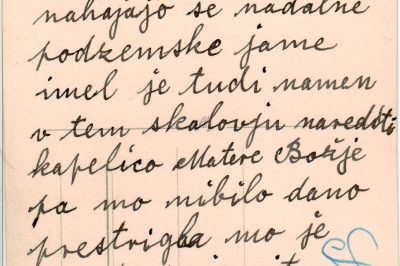 nahajajo se nadalne
podzemske jame
imel je tudi namen
v tem skalovju naredti
kapelico Matere Božje
pa mo nibilo dano
prestrigla mo je